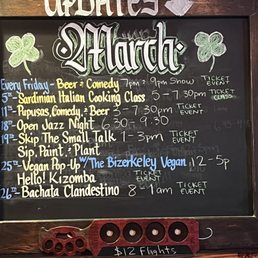 UPDATES
March
Every Friday - Beer & Comedy 7pm & 9pm Show TICKET EVENT
5TH - Sardinian Italian Cooking Class 5-7:30pm TICKET CLASS
11TH - Pupusas, Comedy, & Beer 3-7:30pm TICKET EVENT
18TH - Open Jazz Night 6:30-9:30
19TH - Skip The Small Talk 1-3pm TICKET EVENT
Sip, Paint, & Plant
25TH - Vegan Pop-Up w/The Bizerkeley Vegan 12-5p
Hello! Kizomba TICKET EVENT
26TH - Bachata Clandestino 8-1am TICKET EVENT
$12 Flights